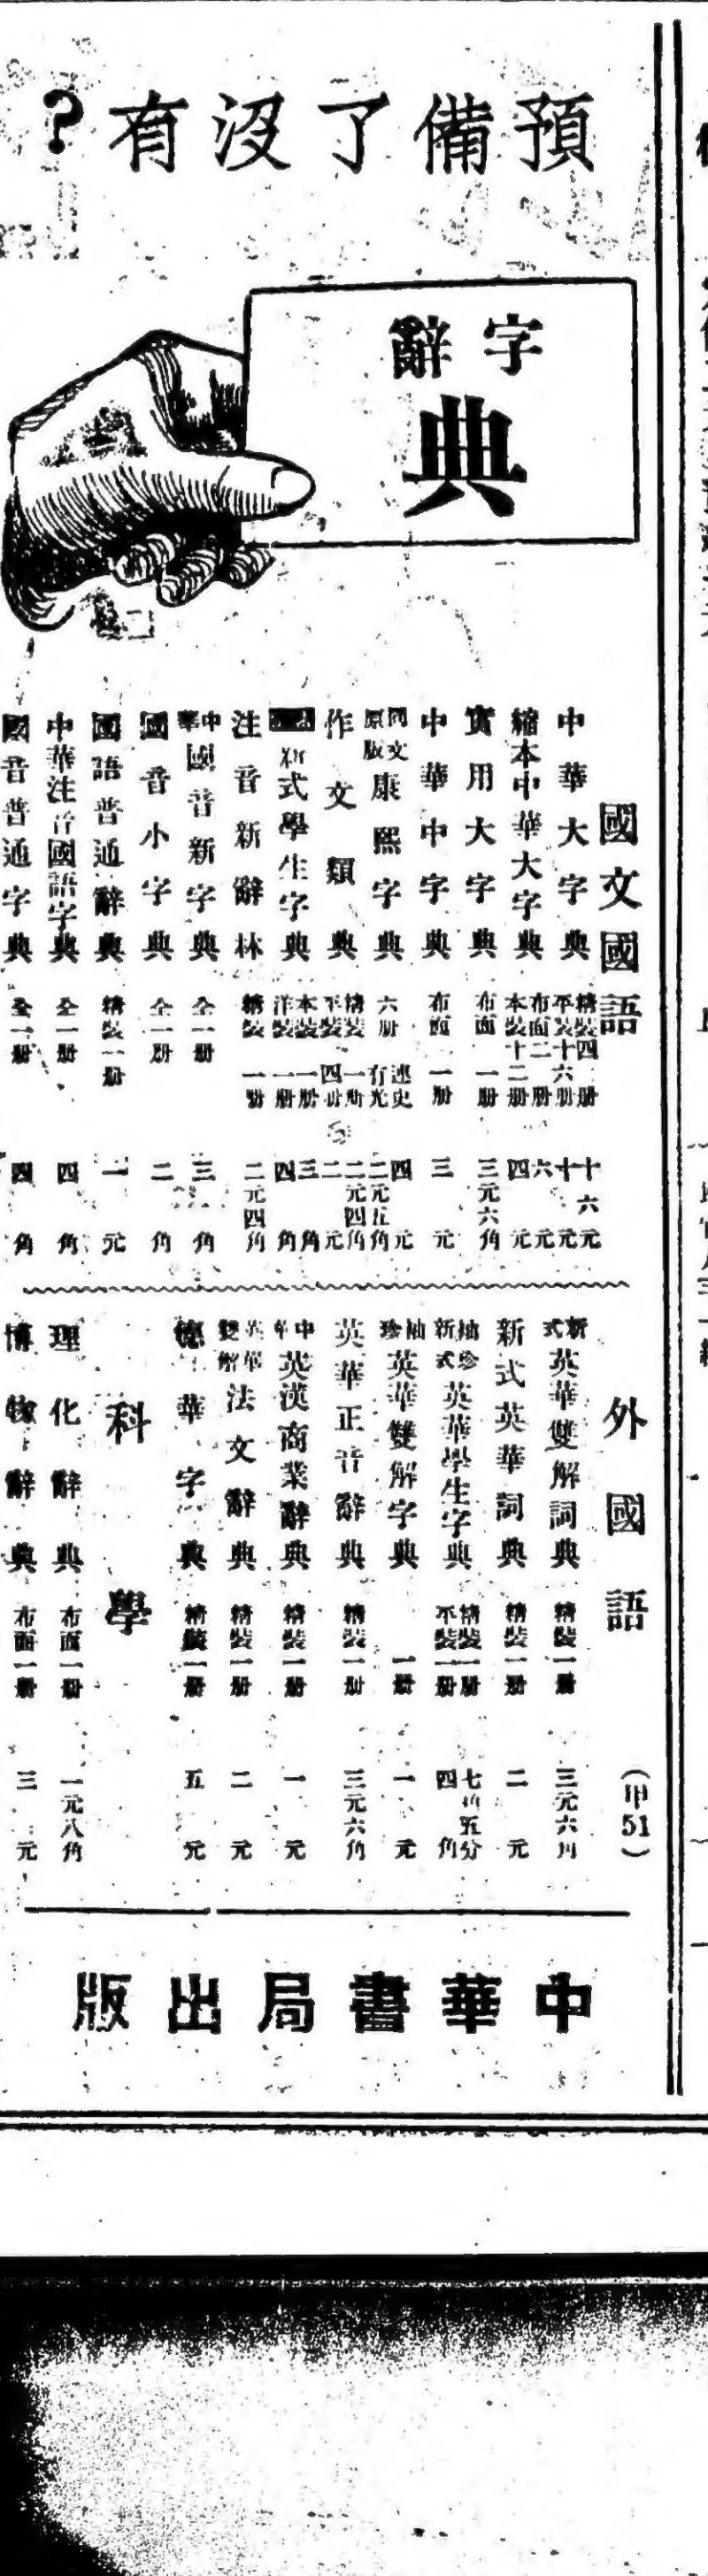 預備了沒有?
字辭
典
國文國語
中華大字典 精裝四册 十六元 平裝十六册 十元
縮本中華大字典 布面二册 六元 本裝十二册 四元
實用大字典 布面一册 三元六角
中華中字典 布面一册 三元
同文原版康熙字典 六册 連史 四元 有光 二元五角
作文類典 精裝一册 二元四角 平裝四册 二元
新式學生字典 本裝一册 三角 洋裝一册 四角
注音新辭林 精裝一册 二元四角
中華國音新字典 全一册 三角
國音小字典 全一册 二角
國語普通辭典 精裝一册 一元
中華注音國語字典 全一册 四角
國音普通字典 全一册 四角
外國語
(甲51)
新式英華雙解詞典 精裝一册 三元六角
新式英華詞典 精裝一册 二元
袖珍新式英華學生字典 精裝一册 七角五分 平裝一册 四角
袖珍英華雙解字典 一册 一元
英華正音辭典 精裝一册 三元六角
中華英漢商業辭典 精裝一册 一元
英華雙解法文辭典 精裝一册 二元
德華字典 精裝一册 五元
科學
理化辭典 布面一册 一元八角
博物辭典 布面一册 三元
中華書局出版